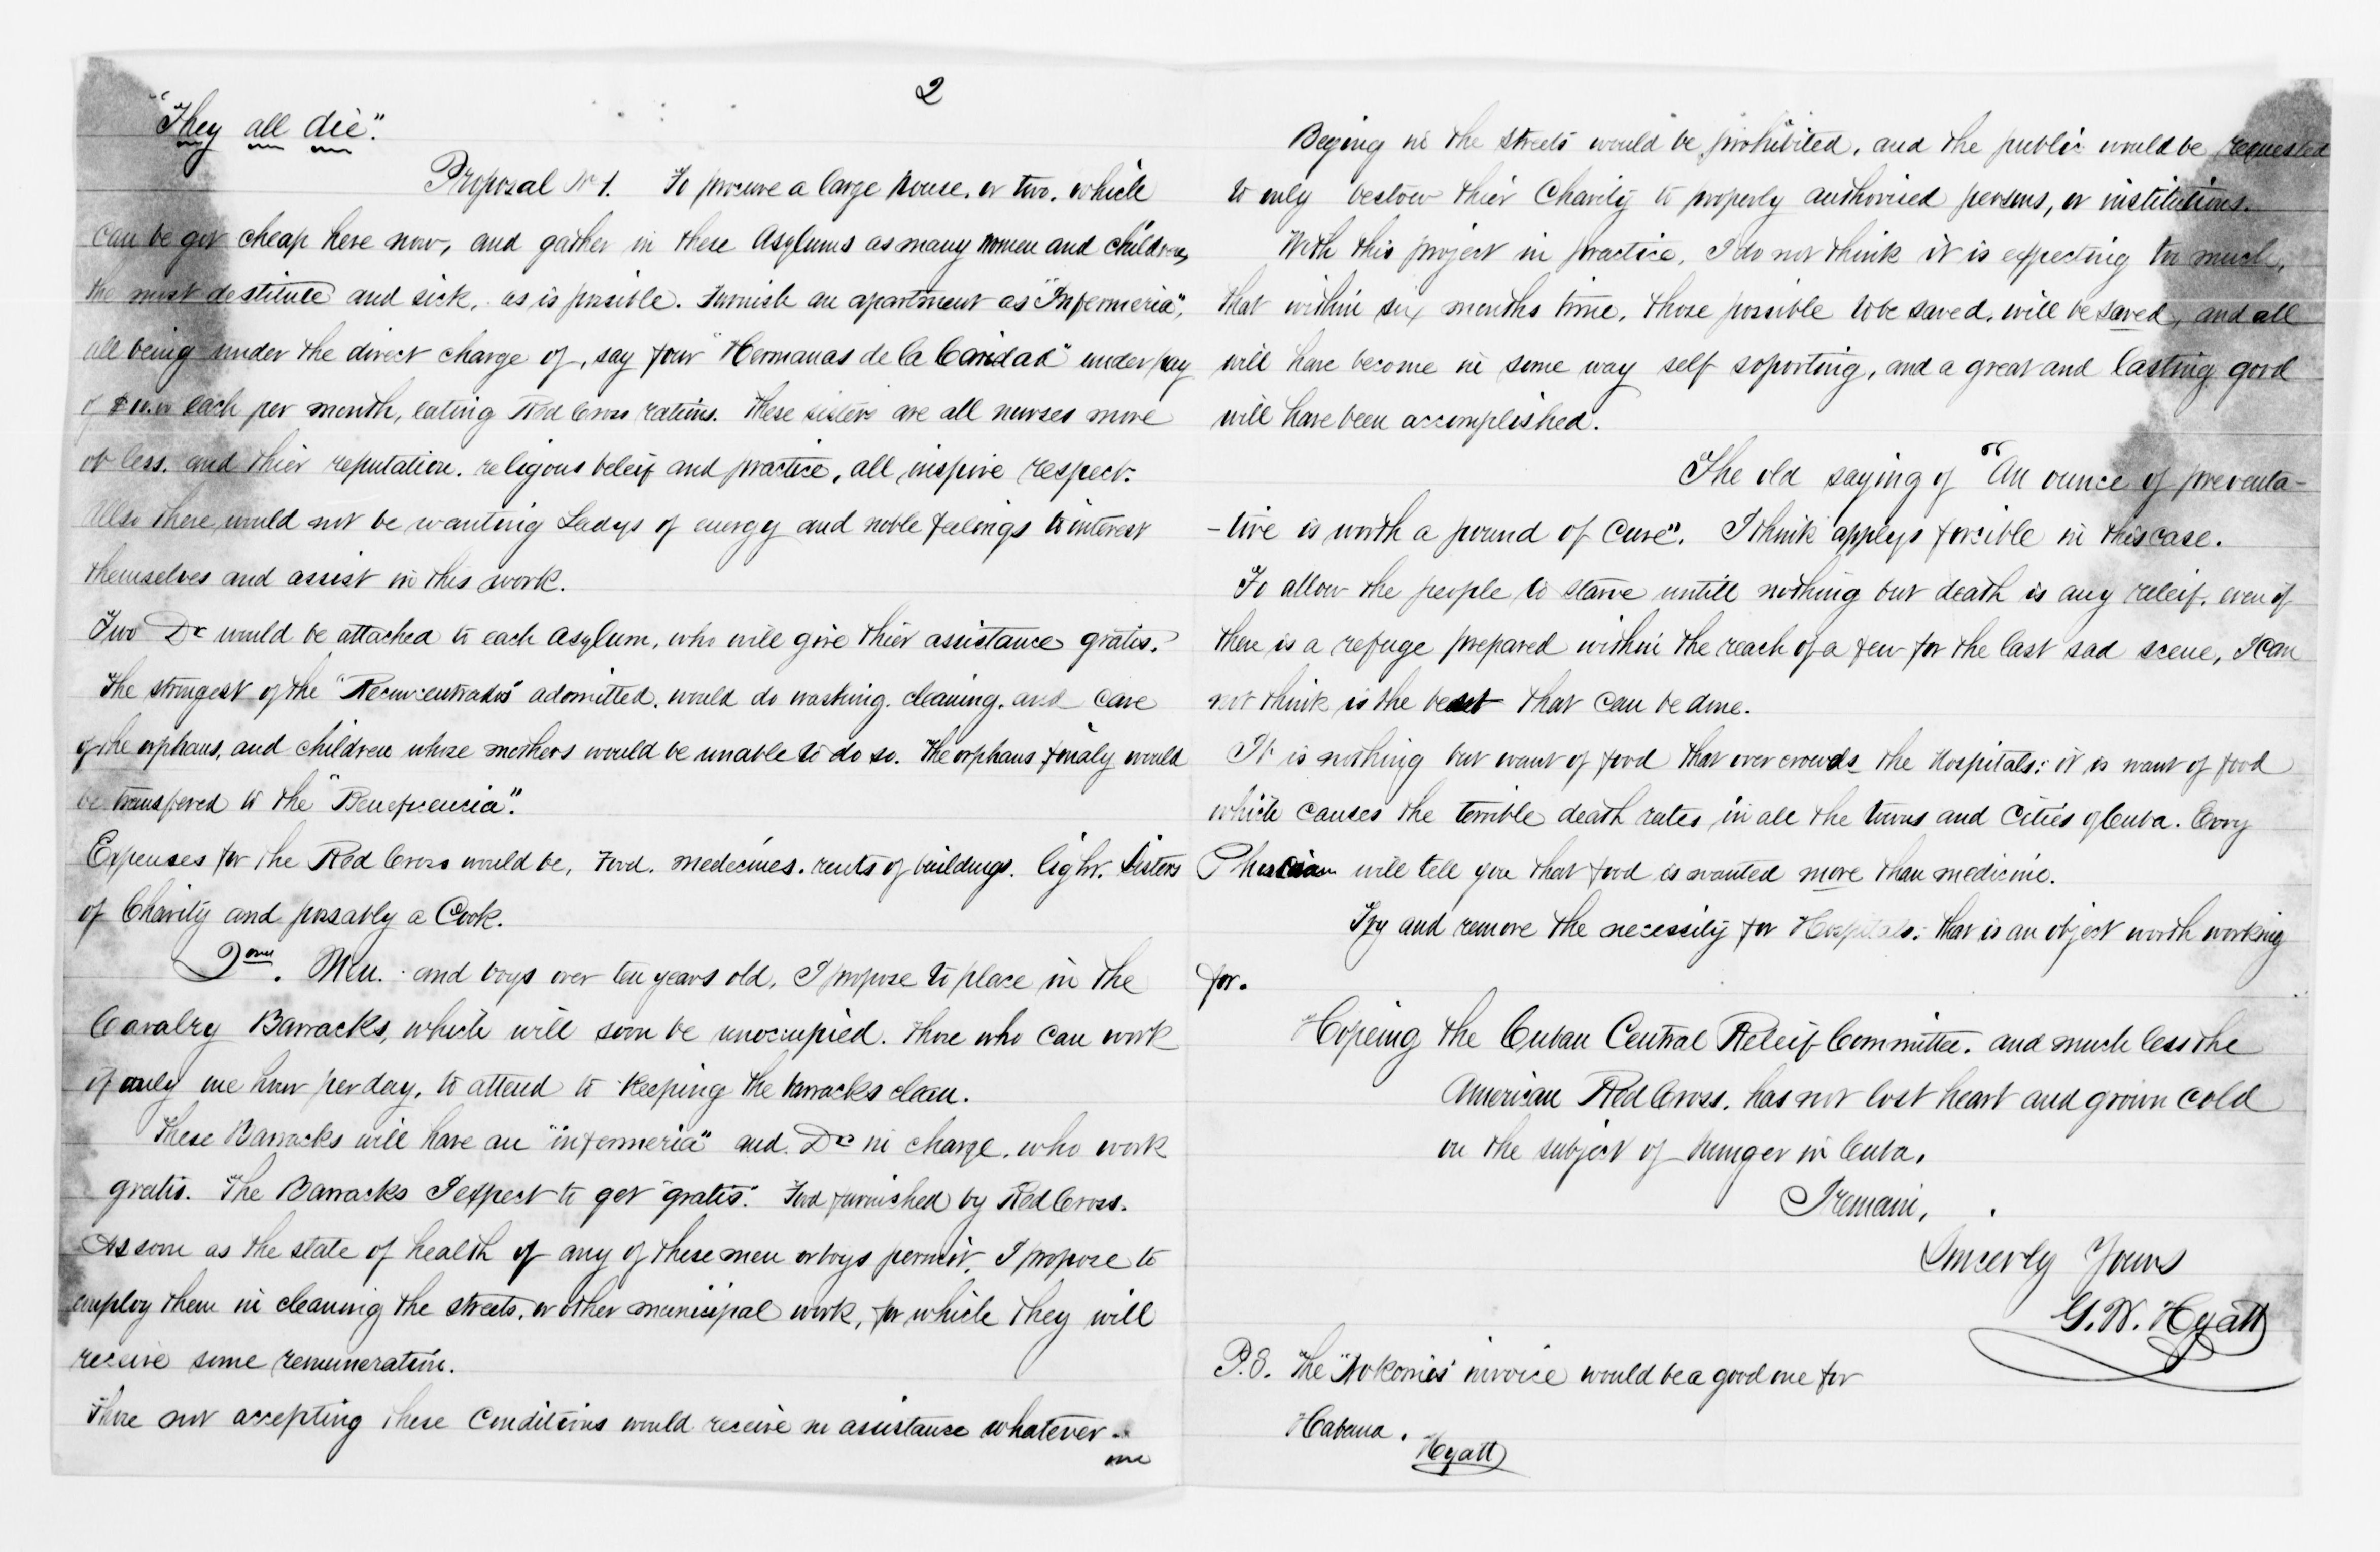 2
"They all die".
Proposal No 1. To procure a large house, or two, which
can be got cheap here now, and gather in these Asylums as many women and children,
the most destitute and sick, as is posible. Furnish an apartment as "Infermeria",
all being under the direct charge of, say four "Hermanas de la Caridad" under pay
of $10.00 each per month, eating Red Cross rations. These sisters are all nurses more
or less, and thier reputation, religous beleif and practice, all inspire respect.
Also there would not be wanting Ladys of energy and noble feelings to interest
themselves and assist in this work.
Two Drs would be attached to each Asylum, who will give thier assistance gratis.
The strongest of the "Reconcentrados" adomitted, would do washing, cleaning, and care
of the orphans, and children whose mothers would be unable to do so. The orphans finaly would
be transfered to the "Beneficencia".
Expenses for the Red Cross would be, Food, medecines, rents of buildings, light, Sisters
of Charity and possably a Cook.
Men, and boys over ten years old, I propose to place in the
Cavalry Barracks, which will soon be unoccupied. Those who can work
if only one hour per day, to attend to keeping the barracks clean.
These Barracks will have an "infermeria" and Drs in charge, who work
gratis. The Barracks I expect to get "gratis". Food furnished by Red Cross.
As soon as the state of health of any of these men or boys permit, I propose to
employ them in cleaning the streets, or other municipal work, for which they will
receive some remuneration.
Those not accepting these conditions would receive no assistance whatever.
Beging in the streets would be prohibited, and the public would be requested
to only bestow thier Charity to properly authorised persons, or institutions.
With this project in practice, I do not think it is expecting too much,
that within six months time, those possible to be saved, will be saved, and all
will have become in some way self soporting, and a great and lasting good
will have been accomplished.
The old saying of "An ounce of preventa-
-tive is worth a pound of cure". I think applys forcible in this case.
To allow the people to starve untill nothing but death is any releif, even if
there is a refuge prepared within the reach of a few for the last sad scene, I can
not think is the best that can be done.
It is nothing but want of food that over crowds the Hospitals: it is want of food
which causes the terrible death rates in all the towns and Cities of Cuba. Evry
will tell you that food is wanted more than medicine.
Try and remove the necessity for Hospitals: that is an object worth working
for.
Hopeing the Cuban Central Releif Committee, and much less the
American Red Cross, has not lost heart and grown cold
on the subject of hunger in Cuba,
I remain,
Sincerly Yours
G. W. Hyatt
P.S. The "Nokomis" invoice would be a good one for
Habana.
Hyatt